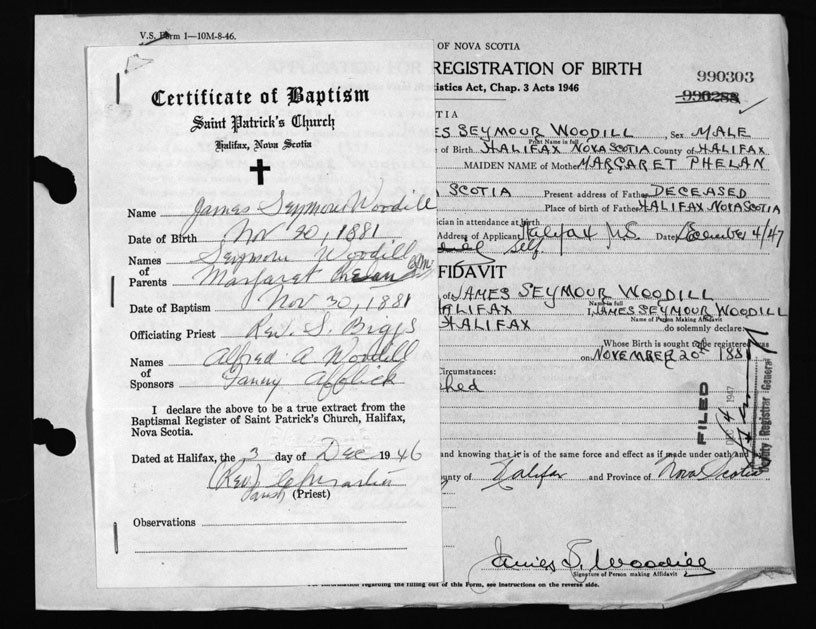 V.S. Form 1—10M-8-46.
Certificate of Baptism
Saint Patrick's Church
Halifax, Nova Scotia
Name James Seymour Woodill
Date of Birth Nov 20, 1881
Names of Parents Seymour Woodill
Margaret
Date of Baptism Nov 30, 1881
Officiating Priest Rev. S. Biggs
Names of Sponsors Alfred A Woodill
Fanny Afflick
I declare the above to be a true extract from the
Baptismal Register of Saint Patrick's Church, Halifax,
Nova Scotia.
Dated at Halifax, the 3 day of Dec 1946
(Rev)
(Priest)
Observations
OF NOVA SCOTIA
REGISTRATION OF BIRTH
990303
990288
istics Act, Chap. 3 Acts 1946
TIA
ES SEYMOUR WOODILL Sex MALE
Print Name in full
of Birth HALIFAX NOVA SCOTIA County of HALIFAX
MAIDEN NAME of Mother MARGARET PHELAN
SCOTIA Present address of Father DECEASED
Place of birth of Father HALIFAX NOVA SCOTIA
ician in attendance at birth
Address of Applicant Halifax N.S. Date December 4/47
self
FIDAVIT
of JAMES SEYMOUR WOODILL
Name in full
ALIFAX I, JAMES SEYMOUR WOODILL
Name of Person Making Affidavit
HALIFAX do solemnly declare:
Whose Birth is sought to be registered was
on NOVEMBER 20th 1881
Circumstances:
hed
FILED
DEC 4 1947
Deputy Registrar General
and knowing that it is of the same force and effect as if made under oath and
nty of Halifax and Province of Nova Scotia
James S. Woodill
Signature of Person making Affidavit
For information regarding the filling out of this Form, see instructions on the reverse side.